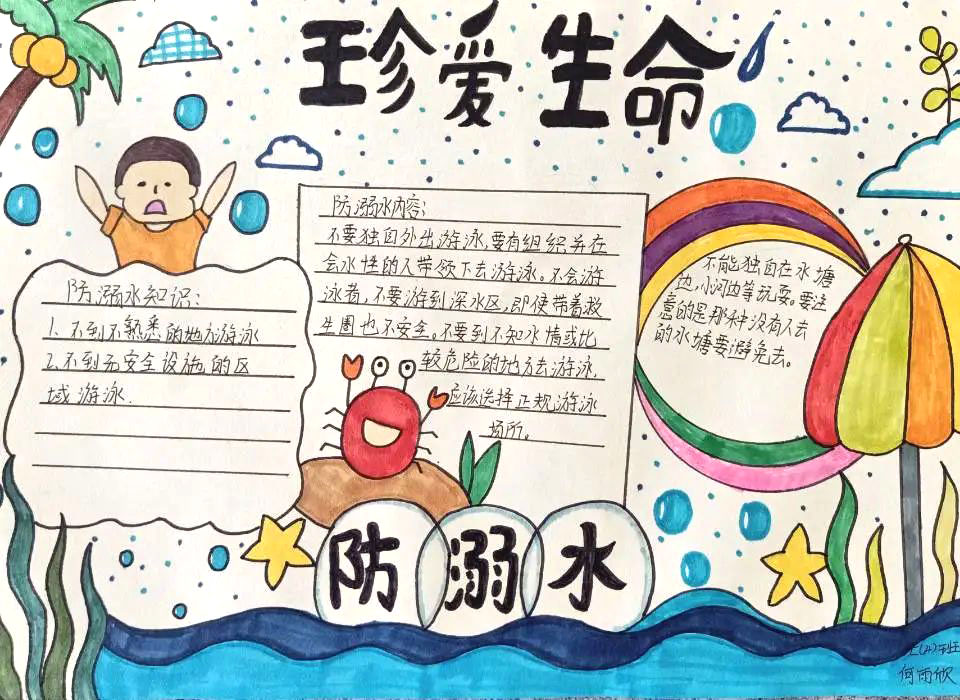 珍爱生命
防溺水知识：
1. 不到不熟悉的地方游泳
2. 不到无安全设施的区
域游泳.
防溺水内容：
不要独自外出游泳，要有组织并在
会水性的人带领下去游泳。不会游
泳者，不要游到深水区，即使带着救
生圈也不安全。不要到不知水情或比
较危险的地方去游泳，
应该选择正规游泳
场所。
不能独自在水塘
边，小河边等玩耍。要注
意的是那种没有人去
的水塘要避免去。
防溺水
何雨欣